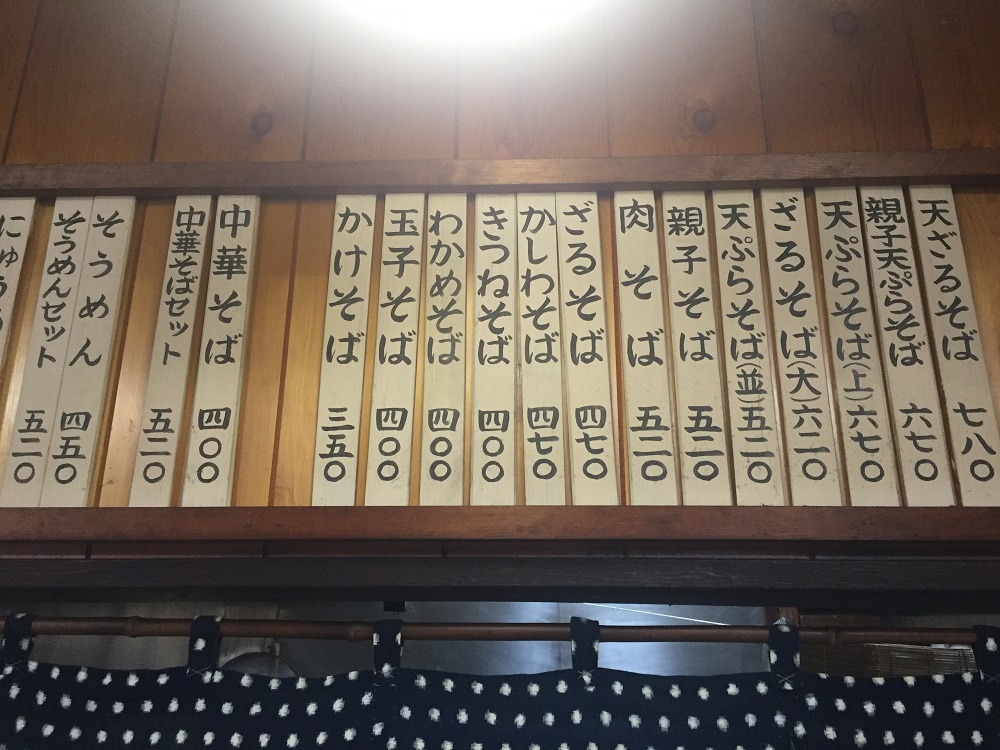 天ざるそば 七八〇
親子天ぷらそば 六七〇
天ぷらそば(上) 六七〇
ざるそば(大) 六二〇
天ぷらそば(並) 五二〇
親子そば 五二〇
肉そば 五二〇
ざるそば 四七〇
かしわそば 四七〇
きつねそば 四〇〇
わかめそば 四〇〇
玉子そば 四〇〇
かけそば 三五〇
中華そば 四〇〇
中華そばセット 五二〇
そうめん 四五〇
そうめんセット 五二〇
にゅう